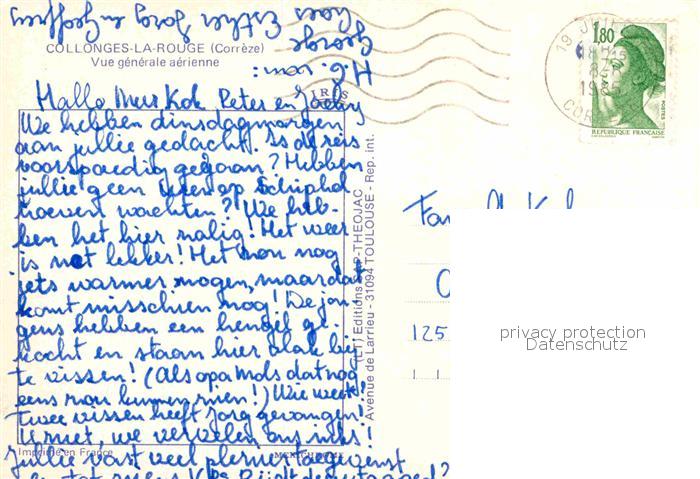 COLLONGES-LA-ROUGE (Corrèze)
Vue générale aérienne
IRIS
Hallo Mevr Kok Peter en
We hebben dinsdagmorgen
aan jullie gedacht. Is de reis
voorspoedig gegaan? Hebben
jullie geen uren op Schiphol
hoeven wachten? We heb-
ben het hier zalig! Het weer
is lekker! Het kon nog
iets warmer mogen, maar dat
komt misschien nog! De jon-
gens hebben een hengel ge-
kocht en staan hier vlak bij
te vissen! (Als opa Mols dat nog
eens kon kunnen zien!) Wie weet!
Twee vissen heeft Jorg gevangen!
we vervelen ons niks!
Jullie vast veel plezier toegewenst
en tot
H.G. van:
George
Kees Esther Jorg en
(LT) Editions CAP-THEOJAC
Avenue de Larrieu - 31094 TOULOUSE - Rep. int.
Imprimé en France
MEXICHROME
19
18H
1985
COR
1,80
POSTES
REPUBLIQUE FRANÇAISE
Fam
125
privacy protection
Datenschutz